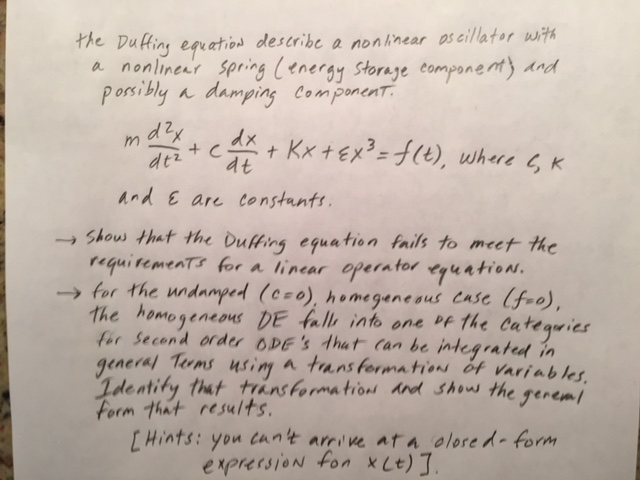 the Duffing equation describe a nonlinear oscillator with
a nonlinear spring (energy storage component) and
possibly a damping component.
m d²x/dt² + c dx/dt + Kx + εx³ = f(t), where c, K
and ε are constants.
→ Show that the Duffing equation fails to meet the
requirements for a linear operator equations.
→ for the undamped (c=0), homegeneous case (f=0),
the homogeneous DE falls into one of the categories
for second order ODE's that can be integrated in
general terms using a transformation of variables.
Identify that transformation and show the general
form that results.
[Hints: you can't arrive at a closed-form
expression for x(t)].